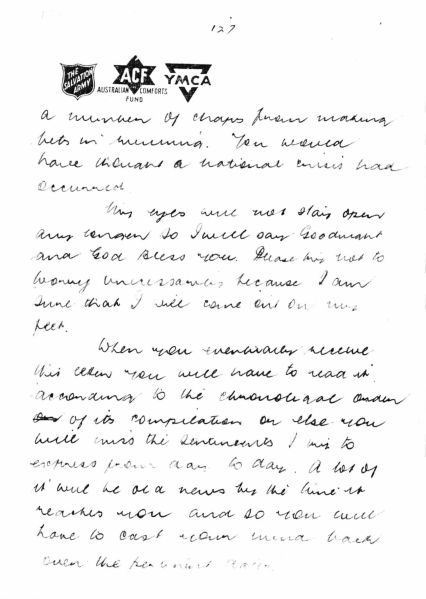 127
THE SALVATION ARMY
ACF
AUSTRALIAN COMFORTS FUND
YMCA
a number of chaps from making
bets in running. You would
have thought a national crisis had
occurred.
My eyes will not stay open
any longer so I will say Goodnight
and God Bless you. Please try not to
worry unnecessarily because I am
sure that I will come out on my
feet.
When you eventually receive
this letter you will have to read it
according to the chronological order
of its compilation or else you
will miss the sentiments I try to
express from day to day. A lot of
it will be old news by the time it
reaches you and so you will
have to cast your mind back
over the